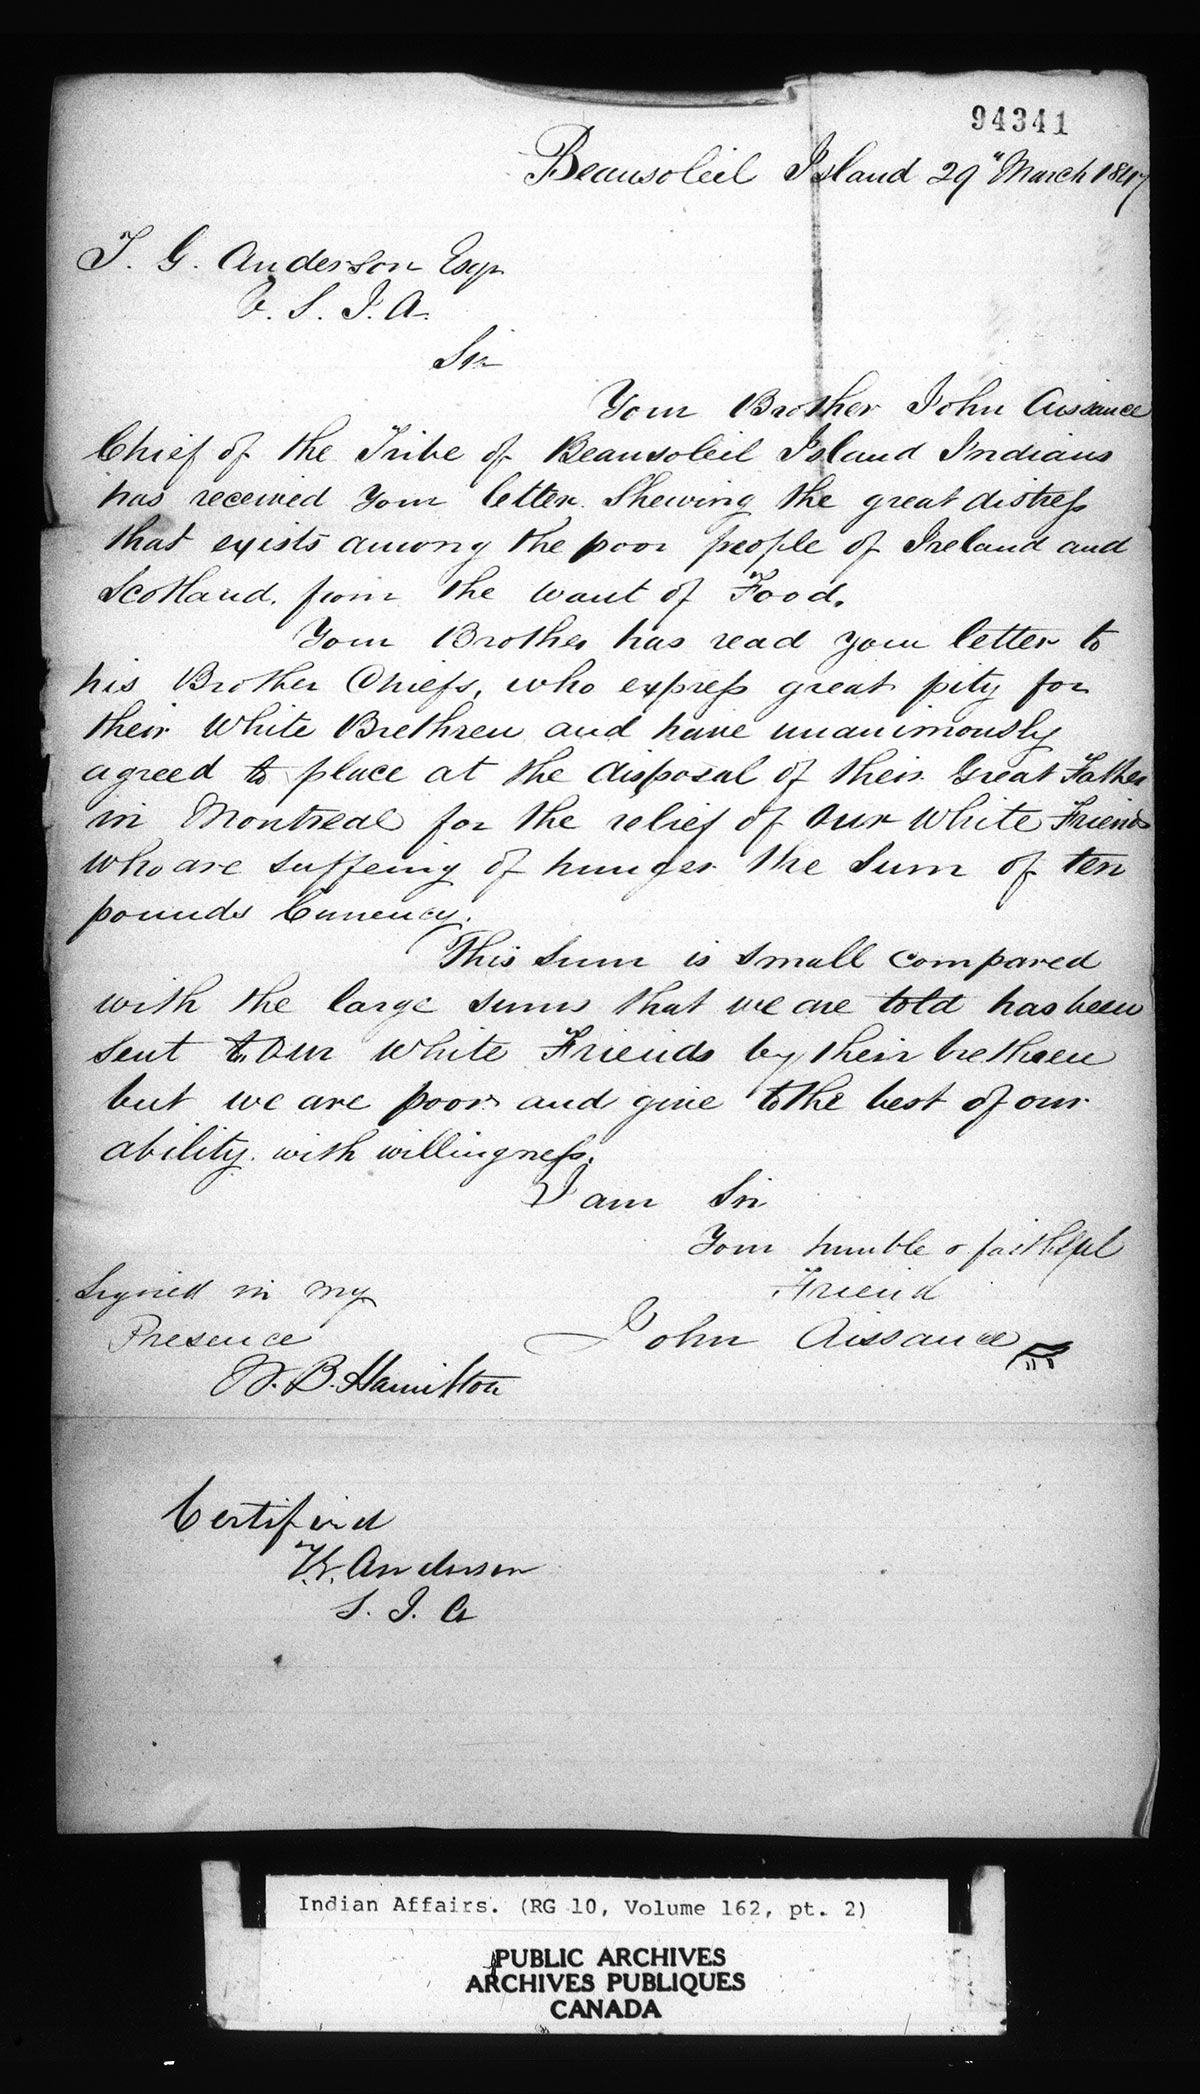 94341
Beausoleil Island 29" March 1847
T. G. Anderson Esqr
V. S. I. A.
Sir
Your Brother John Aissance
Chief of the Tribe of Beausoleil Island Indians
has received your letter. Shewing the great distress
that exists among the poor people of Ireland and
Scotland. from the want of Food.
Your Brother has read your letter to
his Brother Chiefs, who express great pity for
their White Brethren and have unanimously
agreed to place at the disposal of their Great Father
in Montreal for the relief of our White Friends
who are suffeing of hunger the Sum of ten
pounds Currency.
This sum is small compared
with the large sums that we are told has been
sent to Our White Friends by their brethren
but we are poor and give to the best of our
ability. with willingness.
I am Sir
Your humble & faithful
Friend
John Aissance
Signed in my
Presence
W. B. Hamilton
Certified
T. G. Anderson
S. I. A
Indian Affairs. (RG 10, Volume 162, pt. 2)
PUBLIC ARCHIVES
ARCHIVES PUBLIQUES
CANADA